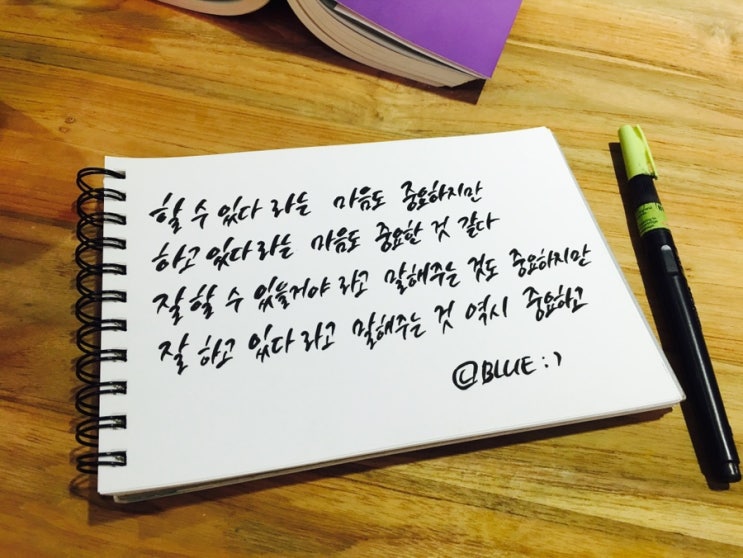 할 수 있다 라는 마음도 중요하지만
하고 있다 라는 마음도 중요한 것 같다
잘 할 수 있을거야 라고 말해주는 것도 중요하지만
잘 하고 있다 라고 말해주는 것 역시 중요하고
@BLUE :)